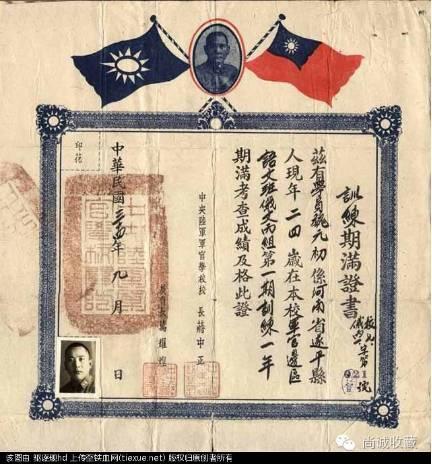 訓練期滿證書
第 021 號
茲有學員 元初係河南省遂平縣
人現年二四歲在本校軍官邊區
語文班俄文丙組第一期訓練一年
期滿考查成績及格此證
中央陸軍軍官學校校長蔣中正
教育長萬耀煌
中華民國 年九月 日
印花
尚诚收藏
该图由 驱逐舰hd 上传至铁血网(tiexue.net) 版权归原创者所有